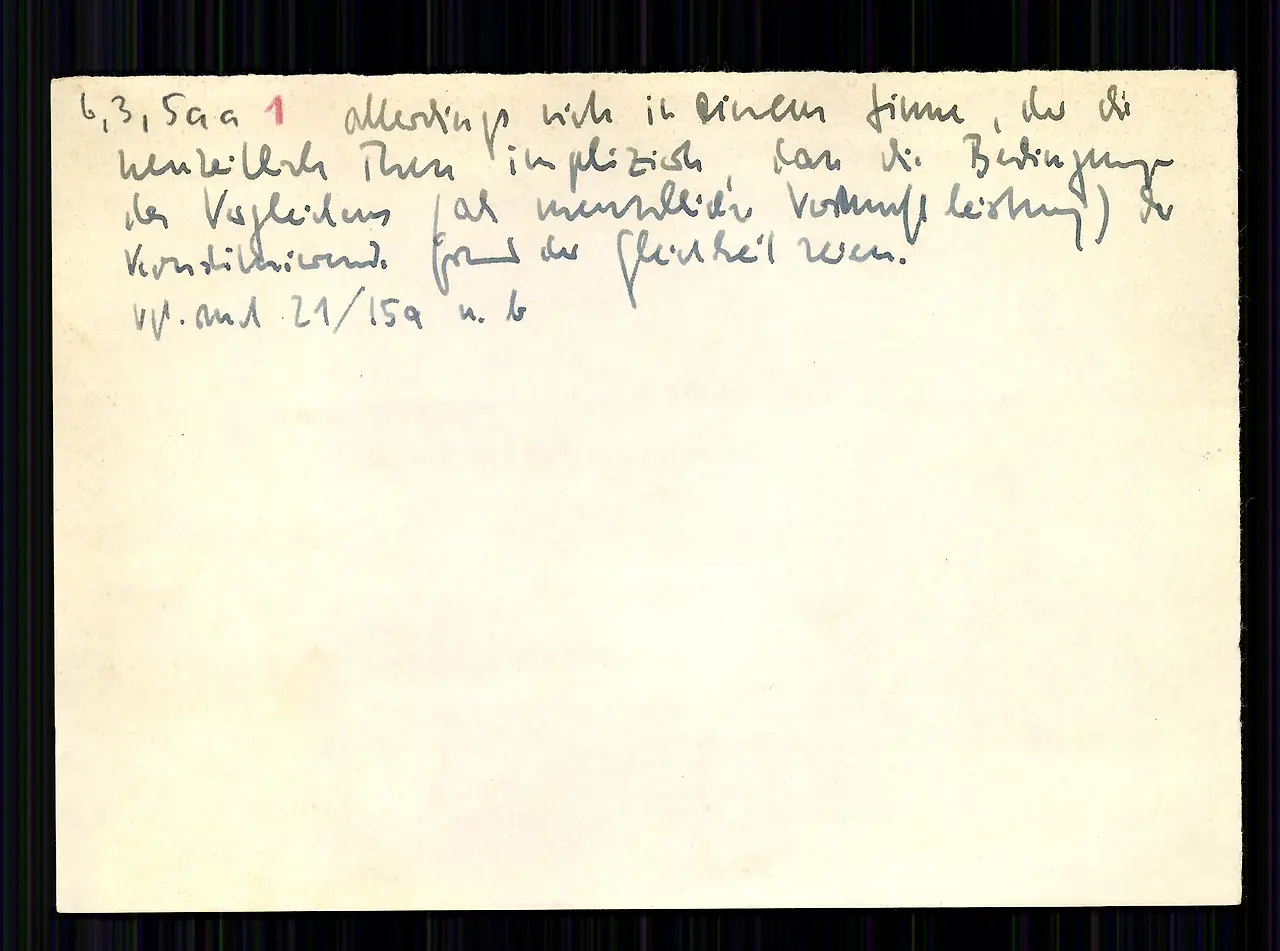 6,3,5aa 1 allerdings nicht in einem Sinne, der die
neuzeitliche These impliziert, dass die Bedingungen
des Vergleichens (als menschliche Vernunftleistung) der
konstituierende Grund der Gleichheit seien.
vgl. auch 21/15a u. b